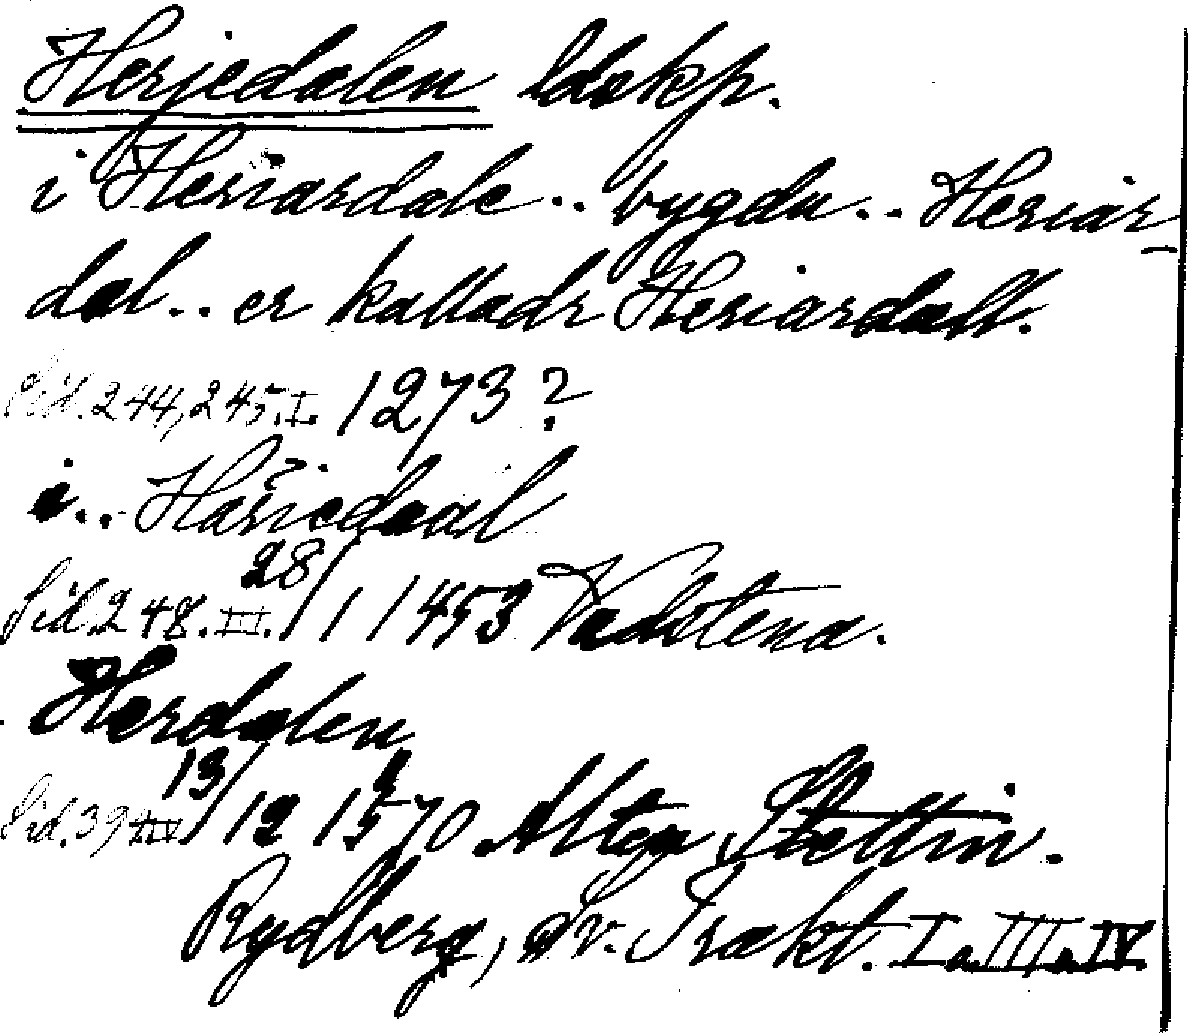 Herjedalen ldskp.
i Heriardale .. bygdu .. Heriar-
dal .. er kalladr Heriardall.
Sid. 244, 245. I. 1273 ?
i .. Häriedaal
Sid. 248. III. 28/1 1453 Vadstena.
Herdalen
Sid. 39 IV 13/12 1570 Alten Stettin.
Rydberg, Sv. Trakt. I o. III o. IV.